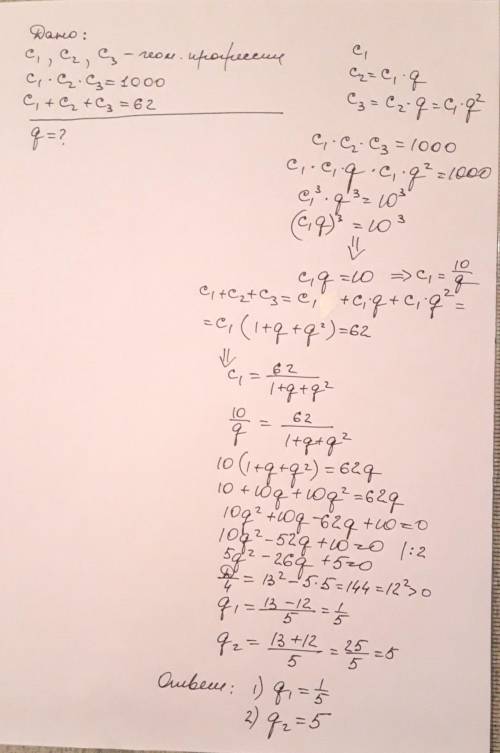 Дано:
c₁, c₂, c₃ – геом. прогрессия
c₁ · c₂ · c₃ = 1000
c₁ + c₂ + c₃ = 62
q = ?
c₁
c₂ = c₁ · q
c₃ = c₂ · q = c₁ · q²
c₁ · c₂ · c₃ = 1000
c₁ · c₁ · q · c₁ · q² = 1000
c₁³ · q³ = 10³
(c₁q)³ = 10³
⇓
c₁q = 10 ⇒ c₁ = 10/q
c₁ + c₂ + c₃ = c₁ + c₁q + c₁ · q² =
= c₁ (1 + q + q²) = 62
⇓
c₁ = 62/(1 + q + q²)
10/q = 62/(1 + q + q²)
10(1 + q + q²) = 62q
10 + 10q + 10q² = 62q
10q² + 10q - 62q + 10 = 0
10q² - 52q + 10 = 0 |:2
5q² - 26q + 5 = 0
D/4 = 13² - 5·5 = 144 = 12² > 0
q₁ = (13 - 12)/5 = 1/5
q₂ = (13 + 12)/5 = 25/5 = 5
Ответ: 1) q₁ = 1/5
2) q₂ = 5